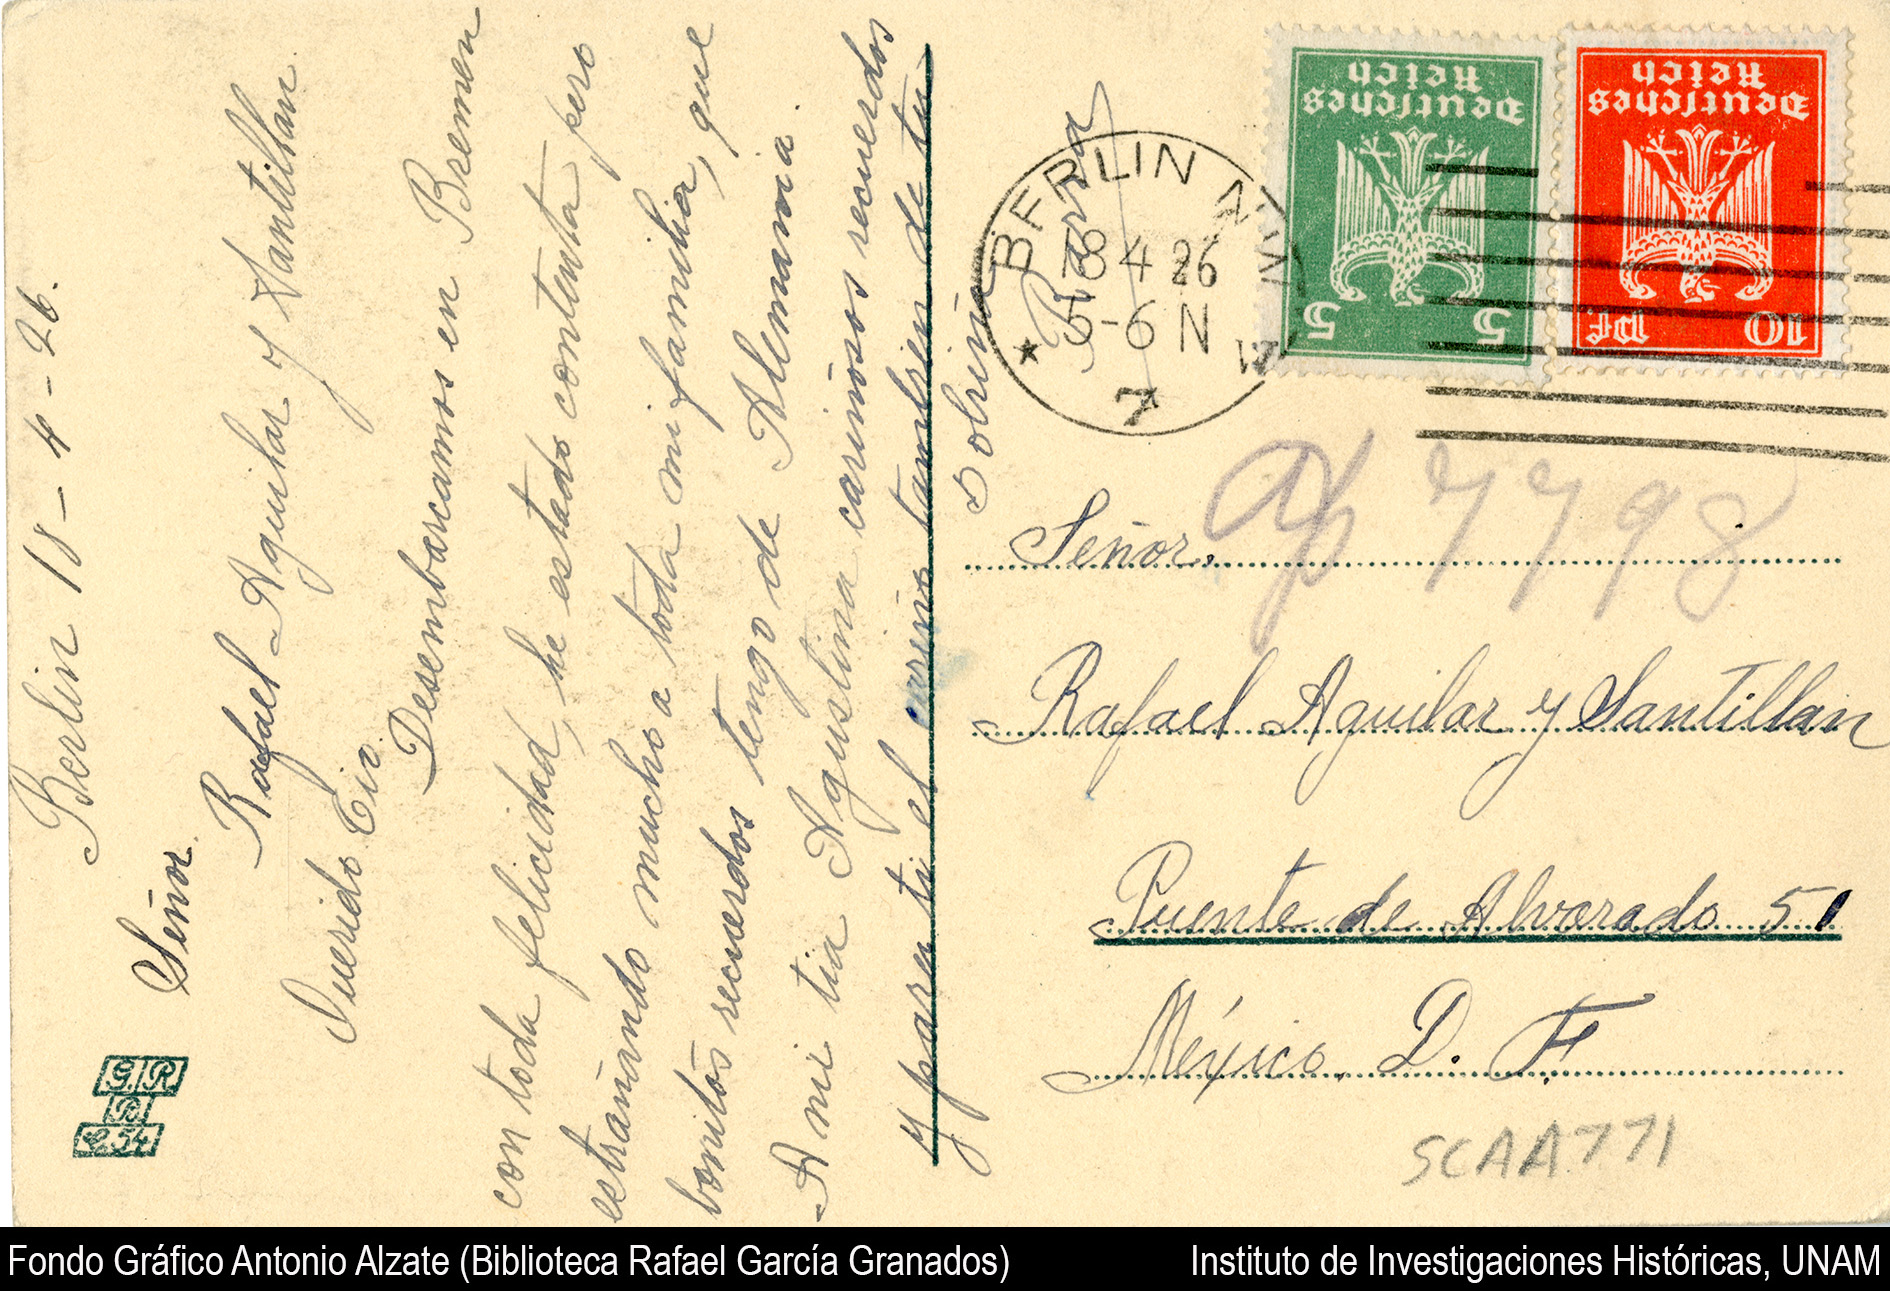 Berlin 18-4-26.
Señor.
Rafael Aguilar y Santillan
Querido tio.
Desembarcamos en Bremen
con toda felicidad, he estado contenta pero
estrañando mucho a toda mi familia, que
bonitos recuerdos tengo de Alemania.
A mi tia Agustina cariñosos recuerdos
y para ti el cariño tambien de tu
sobrina
G.R
B
C.54
BERLIN NW
18 4 26
5-6 N
7
Deutsches
Reich
5 5
Deutsches
Reich
10 Pf
Ap 7798
Señor.
Rafael Aguilar y Santillan
Puente de Alvarado 51
México. D. F.
SCAA771
Fondo Gráfico Antonio Alzate (Biblioteca Rafael García Granados)
Instituto de Investigaciones Históricas, UNAM